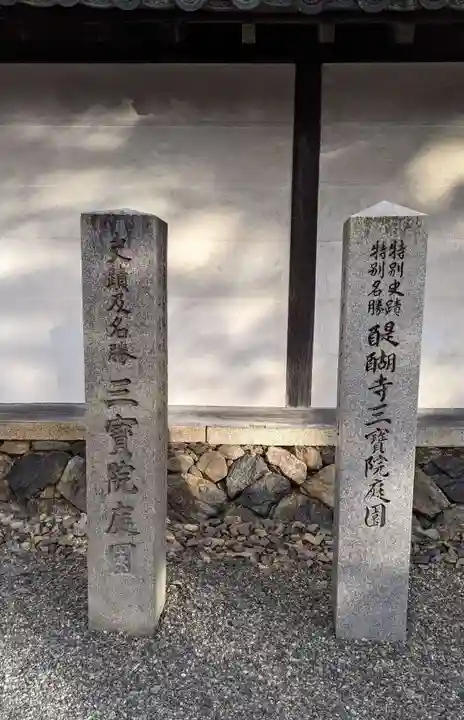 特別史蹟
特別名勝
醍醐寺三寳院庭園
史蹟及名勝
三寳院庭園